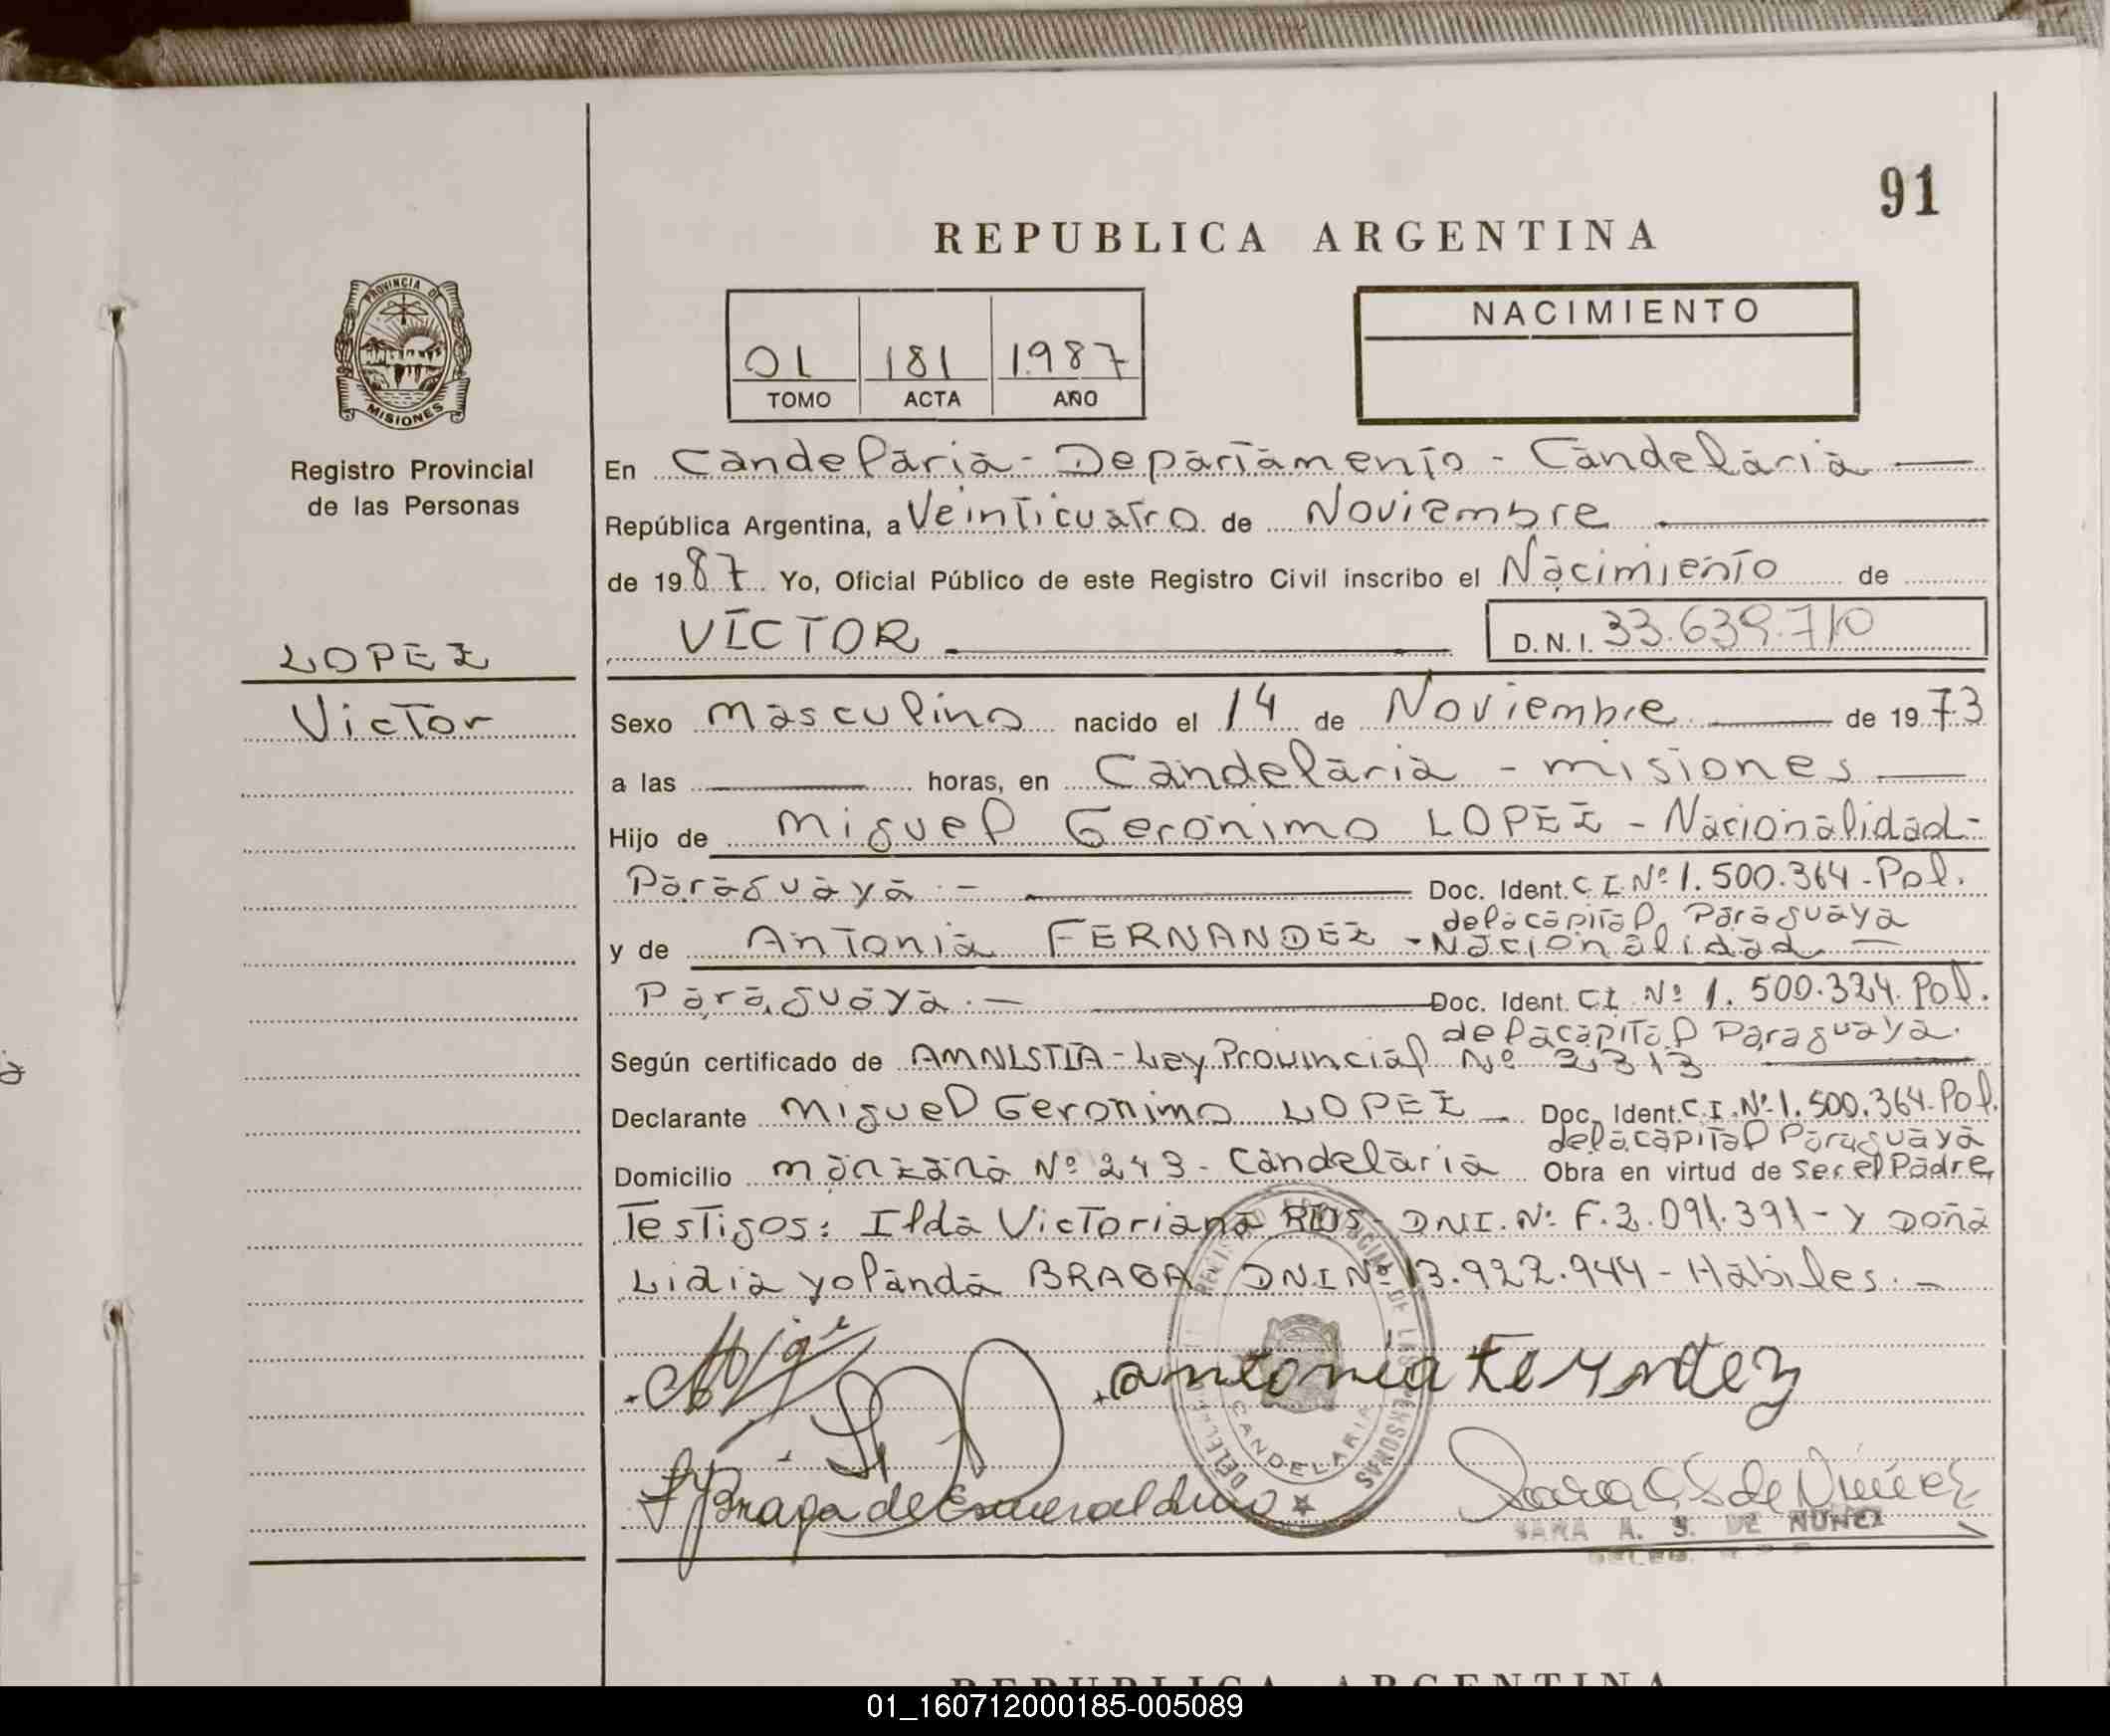 91
REPUBLICA ARGENTINA
PROVINCIA DE
MISIONES
Registro Provincial
de las Personas
NACIMIENTO
01 181 1.987
TOMO ACTA AÑO
En Candelaria - Departamento - Candelaria
República Argentina, a Veinticuatro de Noviembre
de 1987 Yo, Oficial Público de este Registro Civil inscribo el Nacimiento de
VICTOR D.N.I. 33.639.710
LOPEZ
Victor
Sexo masculino nacido el 14 de Noviembre de 1973
a las horas, en Candelaria - misiones
Hijo de Miguel Geronimo LOPEZ - Nacionalidad -
Paraguaya.- Doc. Ident. C.I. Nº 1.500.364 - Pol.
de la capital Paraguaya
y de Antonia FERNANDEZ - Nacionalidad
Paraguaya.- Doc. Ident. CI Nº 1.500.324. Pol.
de la capital Paraguaya.
Según certificado de AMNISTIA - Ley Provincial Nº 2313
Declarante Miguel Geronimo LOPEZ Doc. Ident. C.I. Nº 1.500.364 - Pol.
de la capital Paraguaya
Domicilio manzana Nº 243 - Candelaria Obra en virtud de ser el Padre
Testigos: Ilda Victoriana RIOS - DNI. Nº F. 2.091.391 - y Doña
Lidia yolanda BRAGA DNI Nº 13.922.944 - Habiles.-
CANDELARIA
L Braga de Esmeraldino
SARA A. S. DE NUÑEZ
REPUBLICA ARGENTINA
01_160712000185-005089